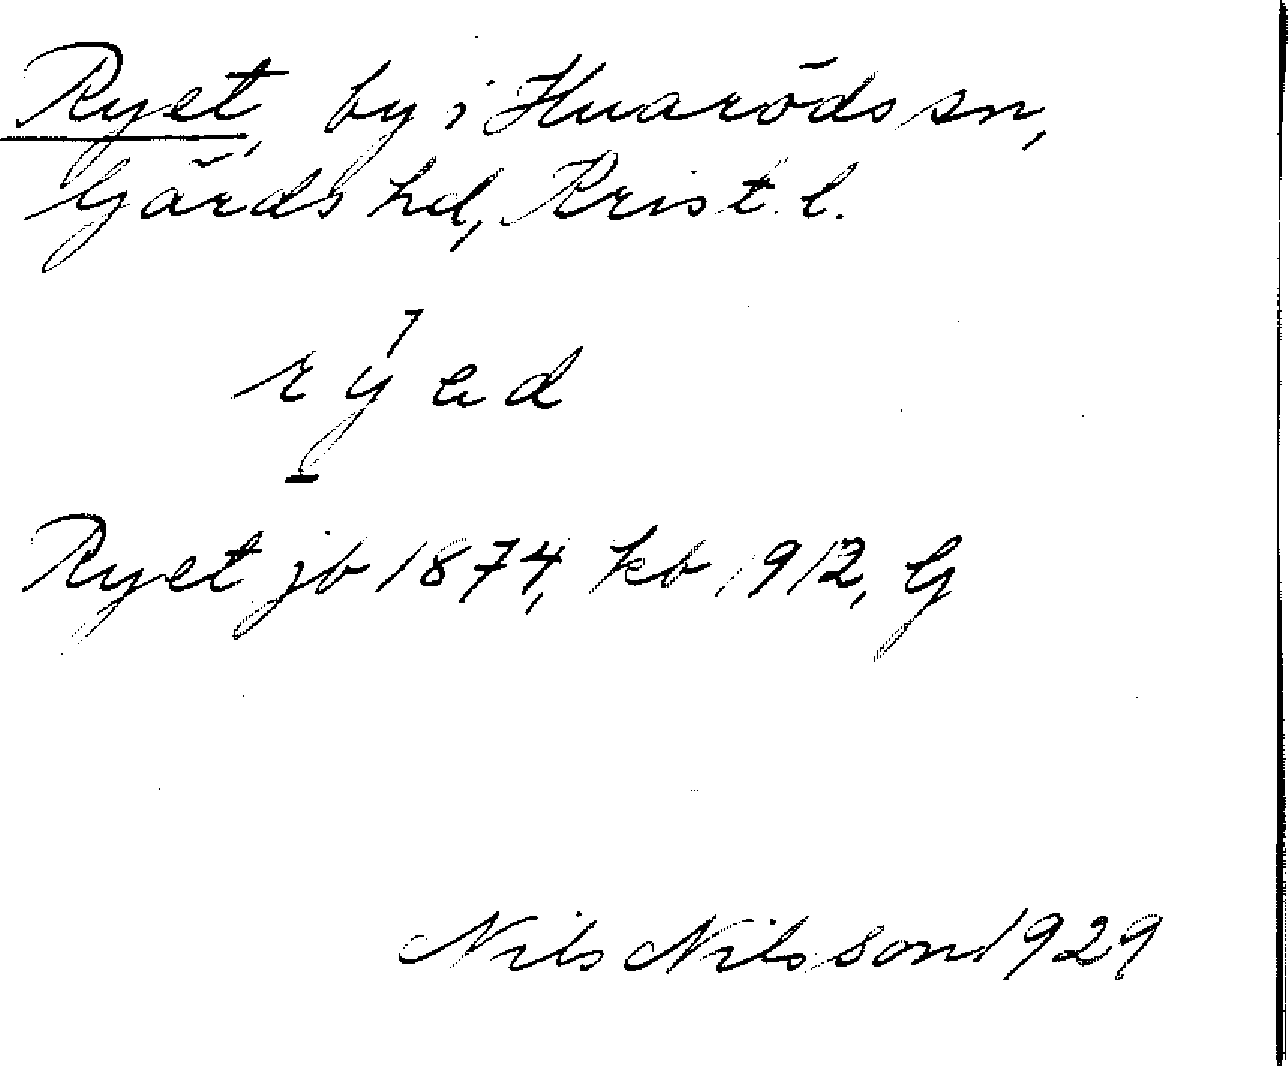 Ryet, by i Huaröds sn,
Gärds hd, Krist. l.
Ryet jb 1874, kb 1912, G
Nils Nilsson 1929